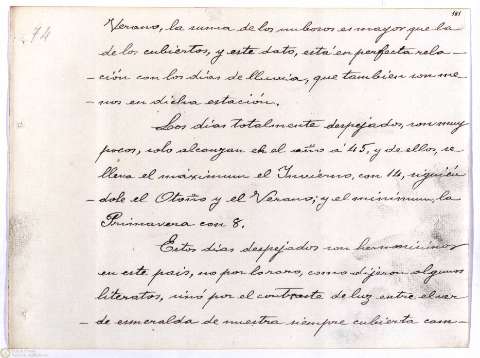 181
74
Verano, la suma de los nubosos es mayor que la
de los cubiertos, y este dato, está en perfecta rela-
-ción con los días de lluvia, que tambien son me-
-nos en dicha estación.
Los días totalmente despejados, son muy
pocos, solo alcanzan en el año á 45, y de ellos, se
lleva el máximum el Invierno, con 14, siguién
dole el Otoño y el Verano; y el minimum, la
Primavera con 8.
Estos días despejados son hermosísimos
en este pais, no por lo raro, como dijeron algunos
literatos, sinó por el contraste de luz entre el ver-
-de esmeralda de nuestra siempre cubierta cam-